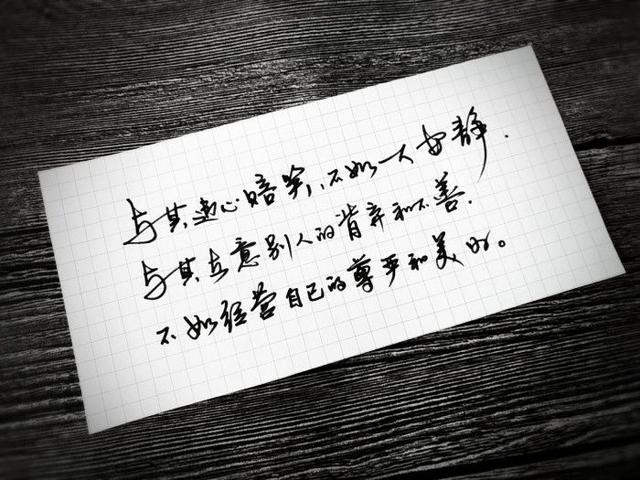 与其违心赔笑，不如一人安静．
与其在意别人的背弃和不善．
不如经营自己的尊严和美好。